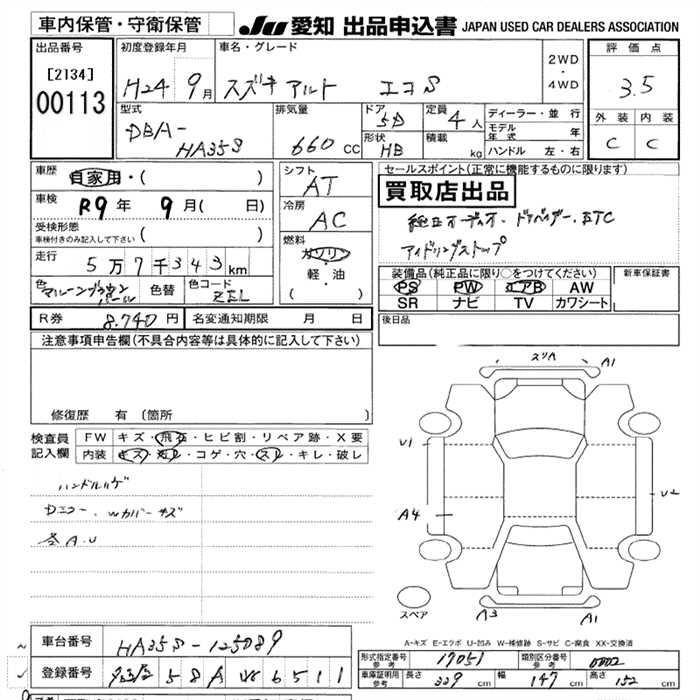 車内保管・守衛保管
JU 愛知 出品申込書 JAPAN USED CAR DEALERS ASSOCIATION
出品番号
[2134]
00113
初度登録年月
H24 9月
車名・グレード
スズキ アルト エコS
2WD
・
4WD
評価点
3.5
外装 内装
C C
型式
DBA-
HA35S
排気量
660 CC
ドア
5D
形状
HB
定員
4人
積載
kg
ディーラー・並行
モデル年式 年
ハンドル 左・右
車歴
自家用・( )
車検
R9年 9月( 日)
受検形態
車検付きのみ記入して下さい ( )
走行
5万7千343km
色
マルーンブラウンパール
色替
色コード
ZEL
シフト
AT
冷房
AC
燃料
ガソリン
軽・油
( )
セールスポイント(正常に機能するものに限ります)
買取店出品
純正オーディオ、ドアバイザー、ETC
アイドリングストップ
装備品(純正品に限り○をつけてください)
PS PW エアB AW
SR ナビ TV カワシート
新車保証書
R券 8.740円
名変通知期限 月 日
後日品
注意事項申告欄(不具合内容等は具体的に記入して下さい)
修復歴 有 〔箇所
検査員
記入欄
FW キズ・飛石・ヒビ割・リペア跡・X要
内装 キズ・コゲ・穴・スレ・キレ・破レ
ハンドルハゲ
Dエコー、Wカバーキズ
各A.U
スリA A1
U1
U2
A4
スペア
A3 A1
A-キズ E-エクボ U-凹み W-補修跡 S-サビ C-腐食 XX-交換済
車台番号
HA35S-125089
登録番号
58A 6511
形式指定番号
参考
17051
類別区分番号
参考
0002
車庫証明用
参考
長さ 339 幅 147 高さ 152